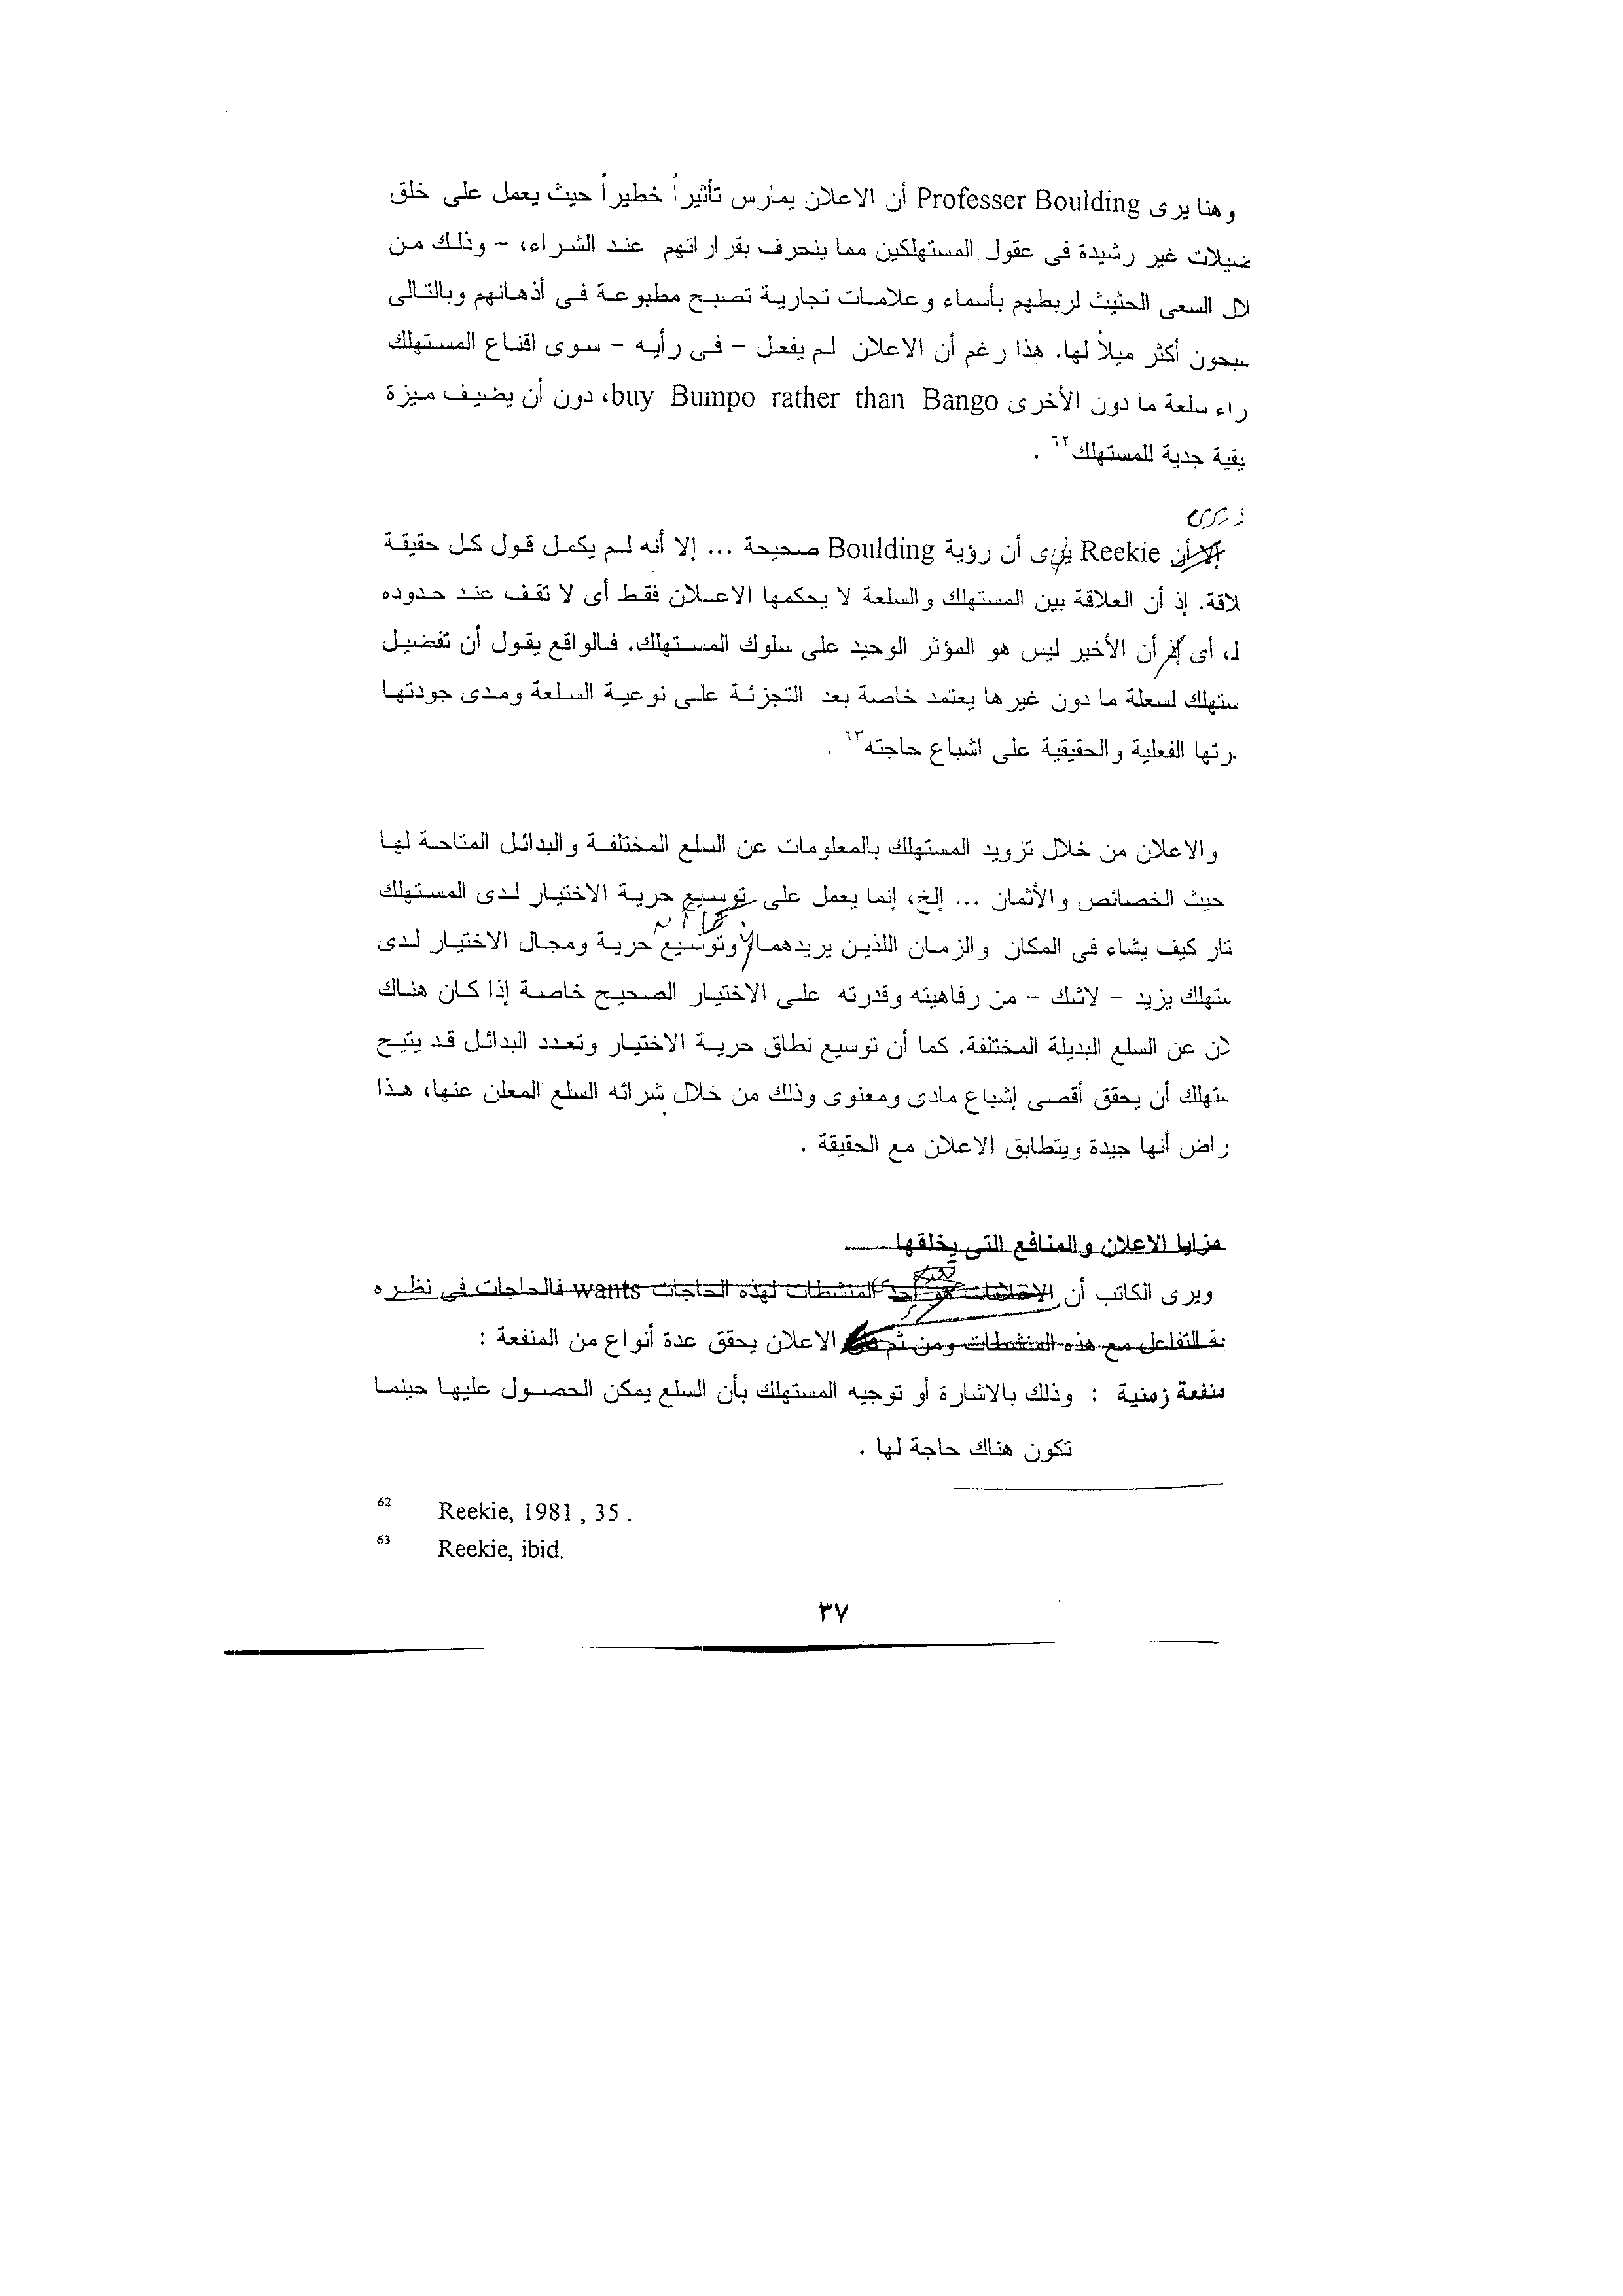 وهنا يرى Professer Boulding أن الاعلان يمارس تأثيراً خطيراً حيث يعمل على خلق
ضيلات غير رشيدة فى عقول المستهلكين مما ينحرف بقراراتهم عند الشراء، - وذلك من
لال السعى الحثيث لربطهم بأسماء وعلامات تجارية تصبح مطبوعة فى أذهانهم وبالتالى
سبحون أكثر ميلاً لها. هذا رغم أن الاعلان لم يفعل - فى رأيه - سوى اقناع المستهلك
راء سلعة ما دون الأخرى buy Bumpo rather than Bango، دون أن يضيف ميزة
يقية جدية للمستهلك٦٢ .
ويرى
إلا أن Reekie يرى أن رؤية Boulding صحيحة ... إلا أنه لم يكمل قول كل حقيقة
لاقة. إذ أن العلاقة بين المستهلك والسلعة لا يحكمها الاعلان فقط أى لا تقف عند حدوده
أى أن الأخير ليس هو المؤثر الوحيد على سلوك المستهلك. فالواقع يقول أن تفضيل
ستهلك لسعلة ما دون غيرها يعتمد خاصة بعد التجزئة على نوعية السلعة ومدى جودتها
رتها الفعلية والحقيقية على اشباع حاجته٦٣ .
والاعلان من خلال تزويد المستهلك بالمعلومات عن السلع المختلفة والبدائل المتاحة لها
حيث الخصائص والأثمان ... إلخ، إنما يعمل على توسيع حرية الاختيار لدى المستهلك
كما أن
تار كيف يشاء فى المكان والزمان اللذين يريدهما وتوسيع حرية ومجال الاختيار لدى
ستهلك يزيد - لاشك - من رفاهيته وقدرته على الاختيار الصحيح خاصة إذا كان هناك
لان عن السلع البديلة المختلفة. كما أن توسيع نطاق حرية الاختيار وتعدد البدائل قد يتيح
ستهلك أن يحقق أقصى إشباع مادى ومعنوى وذلك من خلال شرائه السلع المعلن عنها، هذا
راض أنها جيدة ويتطابق الاعلان مع الحقيقة .
مزايا الاعلان والمنافع التى يخلقها
ويرى الكاتب أن الاعلانات هو أحد المنشطات لهذه الحاجات wants فالحاجات فى نظره
ة التفاعل مع هذه المنشطات ومن ثم الاعلان يحقق عدة أنواع من المنفعة :
منفعة زمنية : وذلك بالاشارة أو توجيه المستهلك بأن السلع يمكن الحصول عليها حينما
تكون هناك حاجة لها .
62 Reekie, 1981 , 35 .
63 Reekie, ibid.
٣٧